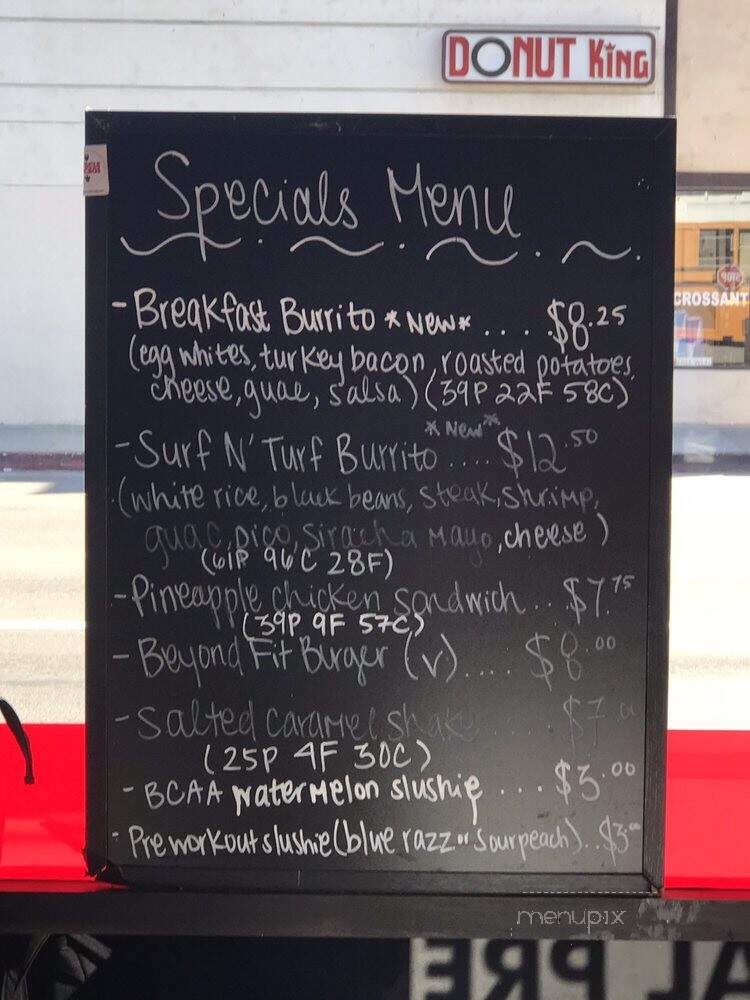 DONUT KING
Specials Menu
CROSSANT
- Breakfast Burrito *New* .... $8.25
(egg whites, turkey bacon, roasted potatoes,
cheese, guac, salsa) (39P 22F 58C)
- Surf N' Turf Burrito *New* .... $12.50
(white rice, black beans, steak, shrimp,
guac, pico, siracha mayo, cheese)
(61P 96C 28F)
- Pineapple chicken sandwich .. $7.75
(39P 9F 57C)
- Beyond Fit Burger (v) .... $8.00
- Salted caramel shake
(25P 4F 30C)
- BCAA watermelon slushie ... $3.00
- Preworkout slushie (blue razz or sour peach) .. $3.00
menupix
AL PRE